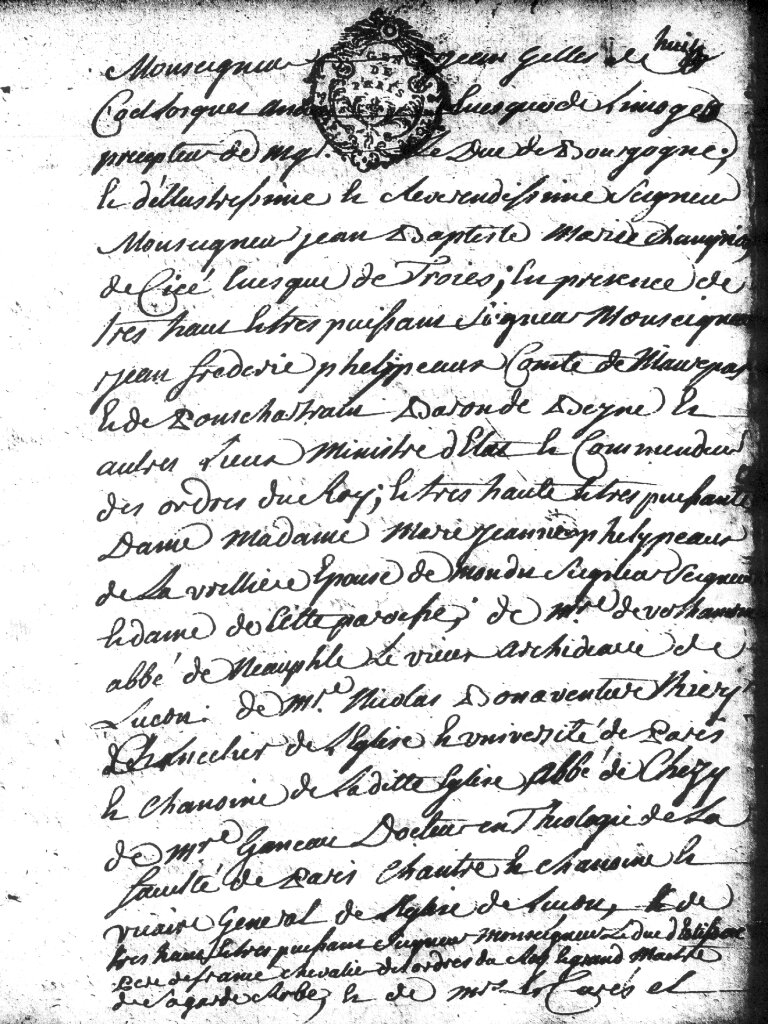 Monseigneur Jean Gilles de
Coetlosquet anc Evesque de Limoges
precepteur de Mgr. Le Duc de Bourgogne;
et d'illustrissime et Reverendissime Seigneur
Monseigneur jean Baptiste Marie Champion
de Cicé Evesque de Troies; En presence de
tres haut et tres puissant Seigneur Monseigneur
jean frederic phelypeaux Comte de Maurepas
et de Pontchartrain Baron de Beyne et
autres Lieux Ministre d'Etat et Commandeur
des ordres du Roy; et tres haute et tres puissante
Dame Madame Marie jeanne phelypeaux
de La vrilliere Epouse de mondit Seigneur Seigneur
et dame de Cette paroisse; de Mre.
abbé de Neauphle Le vieux archidiacre de
Lucon. de Mre. Nicolas Bonaventure Thiery
Chancelier de L'Eglise et université de Paris
et chanoine de La ditte Eglise Abbé de Chezy
de Mre Ganeau Docteur en Theologie de La
faculté de Paris Chantre et chanoine et
vicaire General de L'Eglise de Lucon, et de
tres haut et tres puissant Seigneur Monseigneur Le duc d'Estissac
Pere de france chevalier des ordres du Roy et grand Maitre
de La garde Robe, et de Mrs. Les Curés et
GEN
DE
PARIS